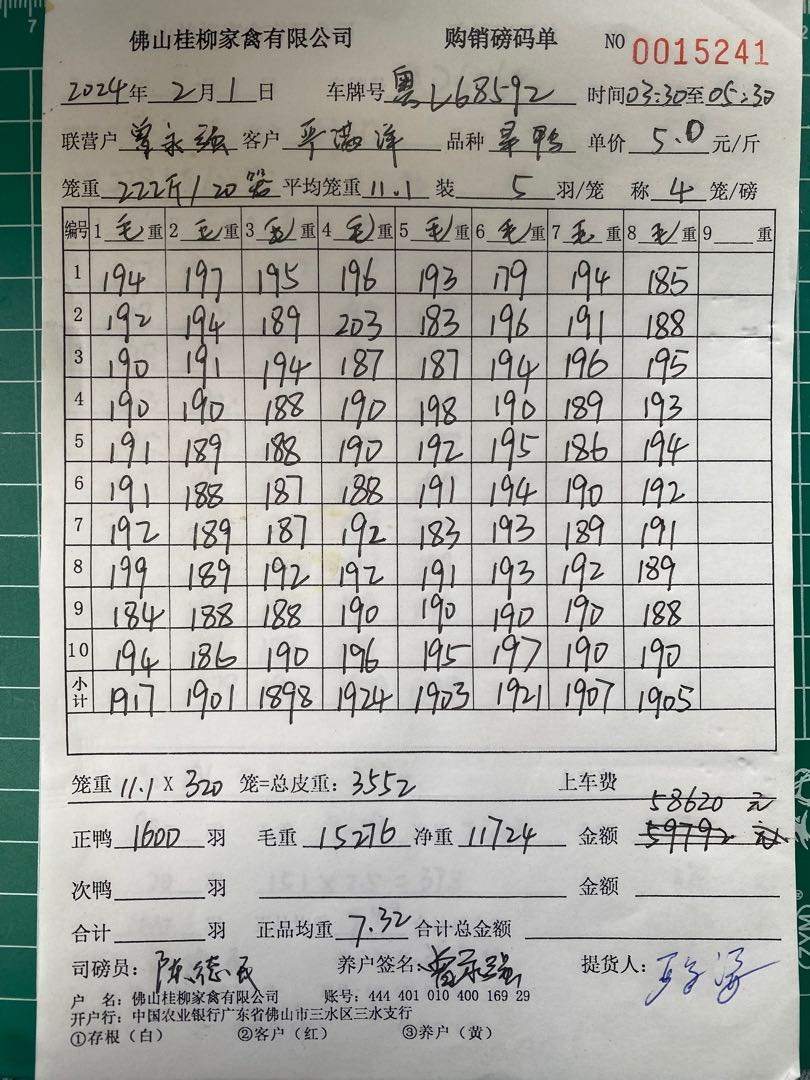 佛山桂柳家禽有限公司 购销磅码单 NO 0015241
2024年 2月 1日 车牌号 粤L68592 时间 03:30至05:30
联营户 曾永强 客户 品种 单价 5.0 元/斤
笼重 222斤/20笼 平均笼重 11.1 装 5 羽/笼 称 4 笼/磅
编号 1 毛 重 2 毛 重 3 毛 重 4 毛 重 5 毛 重 6 毛 重 7 毛 重 8 毛 重 9 重
1 194 197 195 196 193 179 194 185
2 192 194 189 203 183 196 191 188
3 190 191 194 187 187 194 196 195
4 190 190 188 190 198 190 189 193
5 191 189 188 190 192 195 186 194
6 191 188 187 188 191 194 190 192
7 192 189 187 192 183 193 189 191
8 199 189 192 192 191 193 192 189
9 184 188 188 190 190 190 190 188
10 194 186 190 196 195 197 190 190
小计 1917 1901 1898 1924 1903 1921 1907 1905
笼重 11.1 X 320 笼=总皮重: 3552 上车费
58620 元
正鸭 1600 羽 毛重 15276 净重 11724 金额 59792 元
次鸭 羽 金额
合计 羽 正品均重 7.32 合计总金额
司磅员: 陈德民 养户签名: 曾永强 提货人:
户 名: 佛山桂柳家禽有限公司 账号: 444 401 010 400 169 29
开户行: 中国农业银行广东省佛山市三水区三水支行
①存根（白） ②客户（红） ③养户（黄）